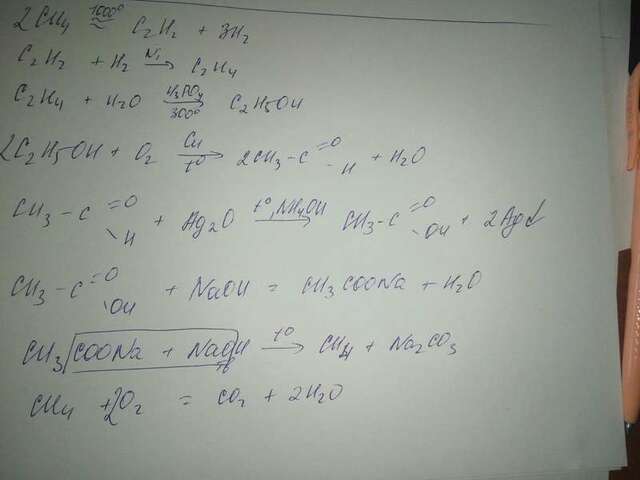 2CH4 1000° ⇌ C2H2 + 3H2
C2H2 + H2 Ni → C2H4
C2H4 + H2O H3PO4 → 300° C2H5OH
2C2H5OH + O2 Cu → t° 2CH3-C =O -H + H2O
CH3-C =O \H + Ag2O t°, NH4OH → CH3-C =O \OH + 2Ag↓
CH3-C =O \OH + NaOH = CH3COONa + H2O
CH3 COONa + NaOH t° → CH4 + Na2CO3
CH4 + 2O2 = CO2 + 2H2O